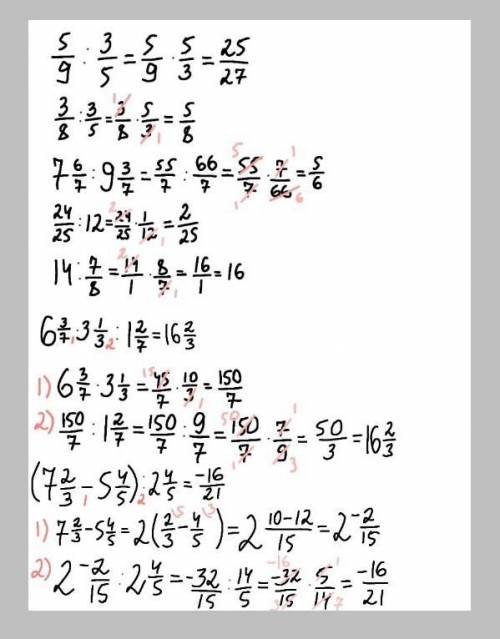 5/9 : 3/5 = 5/9 · 5/3 = 25/27
3/8 : 3/5 = 3/8 · 5/3 = 5/8
7 6/7 : 9 3/7 = 55/7 : 66/7 = 55/7 · 7/66 = 5/6
24/25 : 12 = 24/25 · 1/12 = 2/25
14 : 7/8 = 14/1 · 8/7 = 16/1 = 16
6 3/7 · 3 1/3 : 1 2/7 = 16 2/3
1) 6 3/7 · 3 1/3 = 45/7 · 10/3 = 150/7
2) 150/7 : 1 2/7 = 150/7 : 9/7 = 150/7 · 7/9 = 50/3 = 16 2/3
(7 2/3 - 5 4/5) : 2 4/5 = -16/21
1) 7 2/3 - 5 4/5 = 2(2/3 - 4/5) = 2 10-12/15 = 2 -2/15
2) 2 -2/15 : 2 4/5 = -32/15 : 14/5 = -32/15 · 5/14 = -16/21